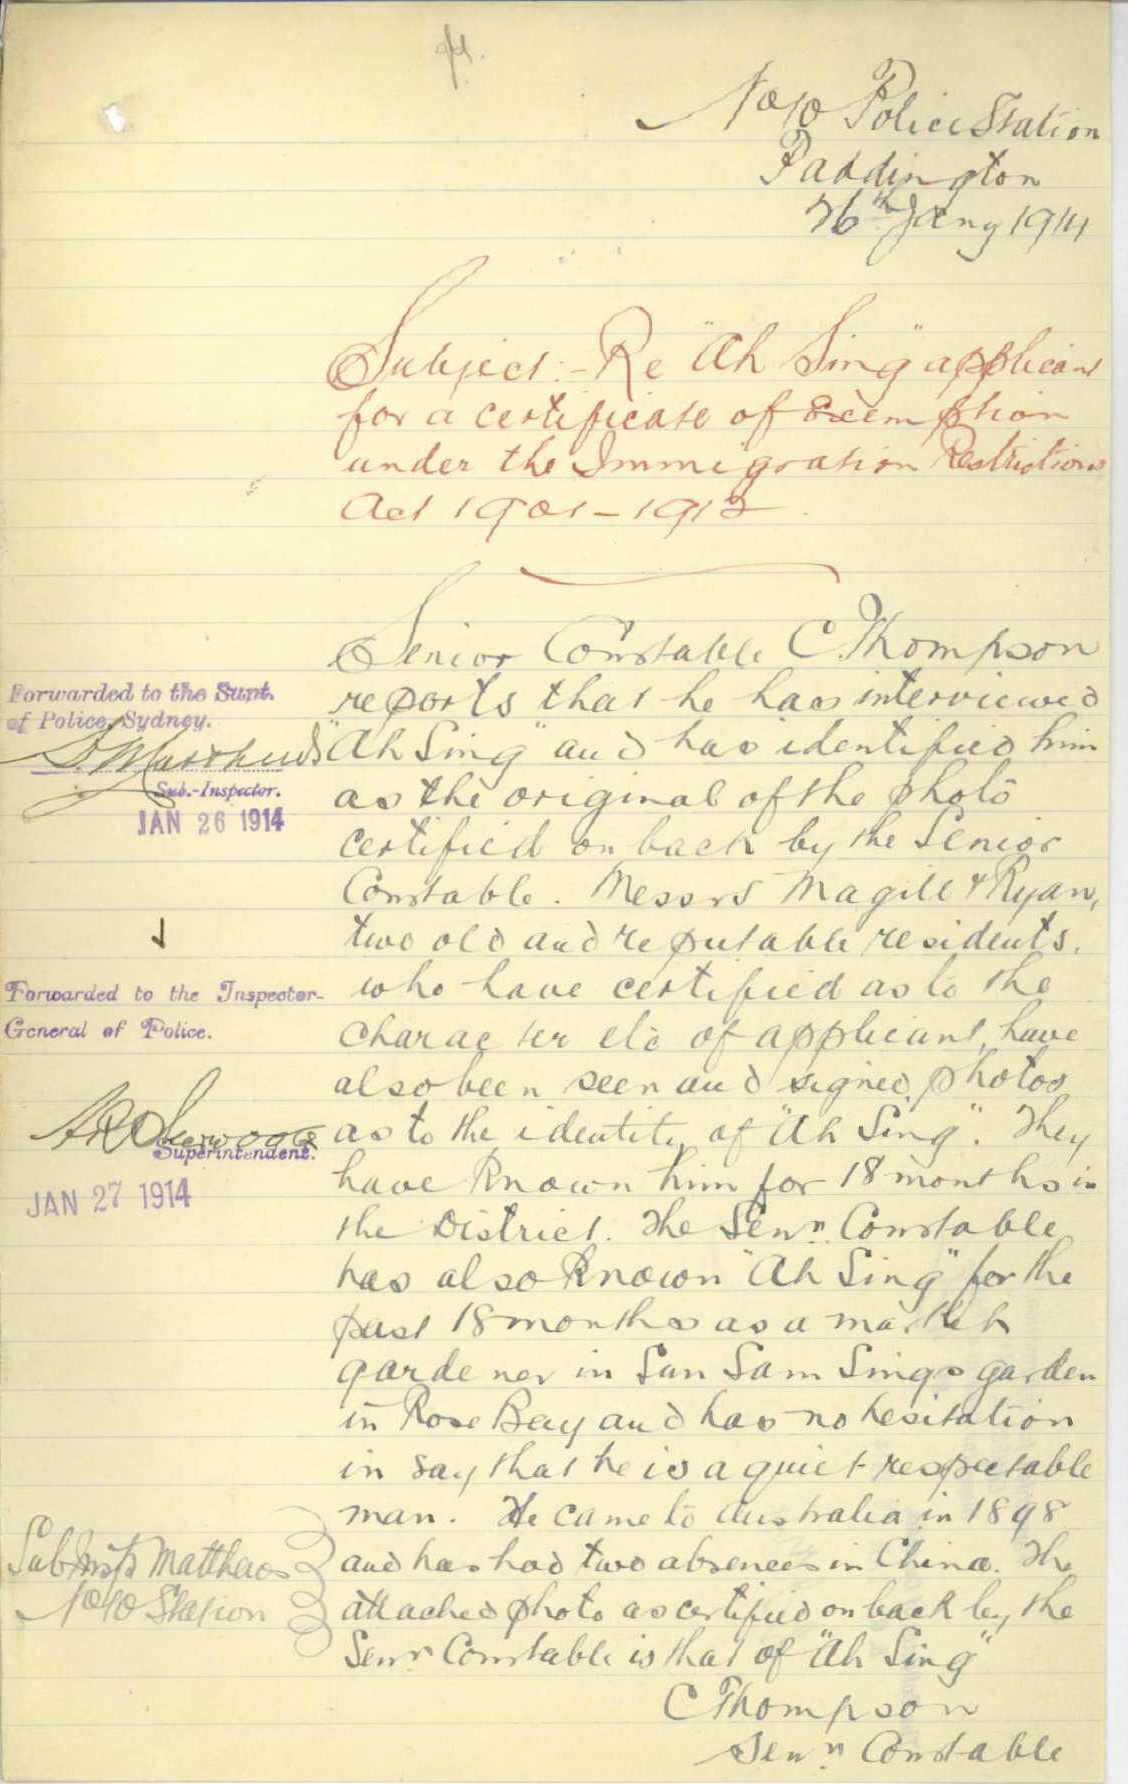 No 10 Police Station
Paddington
26th Jany 1914
Subject:- Re "Ah Sing" applicant
for a certificate of Exemption
under the Immigration Restriction
Act 1901-1912
Senior Constable C. Thompson
reports that he has interviewed
"Ah Sing" and has identified him
as the original of the photo
certified on back by the Senior
Constable. Messrs Magill & Ryan,
two old and reputable residents.
who have certified as to the
character etc of applicant, have
also been seen and signed photos
as to the identity of "Ah Sing". They
have known him for 18 months in
the District. The Senr. Constable
has also known "Ah Sing" for the
past 18 months as a market
gardener in Sun Sam Sings garden
in Rose Bay and has no hesitation
in say that he is a quiet respectable
man. He came to Australia in 1898
and has had two absences in China. The
attached photo as certified on back by the
Senr Constable is that of "Ah Sing"
C Thompson
Senr. Constable
Forwarded to the Supt.
of Police, Sydney.
Matthews
Sub.-Inspector.
JAN 26 1914
Forwarded to the Inspector-
General of Police.
Superintendent.
JAN 27 1914
Sub Instr Matthews
No 10 Station